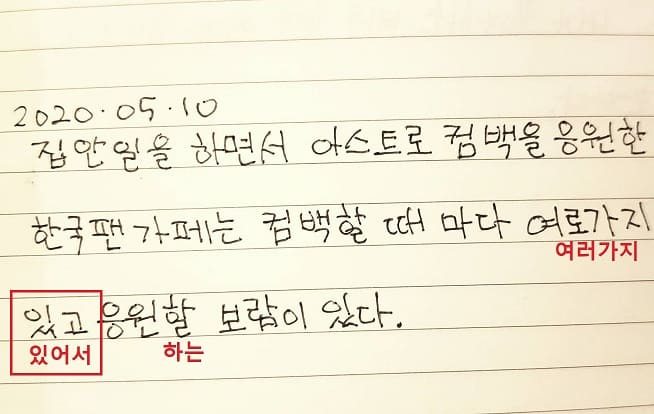 2020.05.10
집안일을 하면서 아스트로 컴백을 응원한
한국팬 가페는 컴백할 때 마다 여로가지
여러가지
있고 응원할 보람이 있다.
있어서 하는